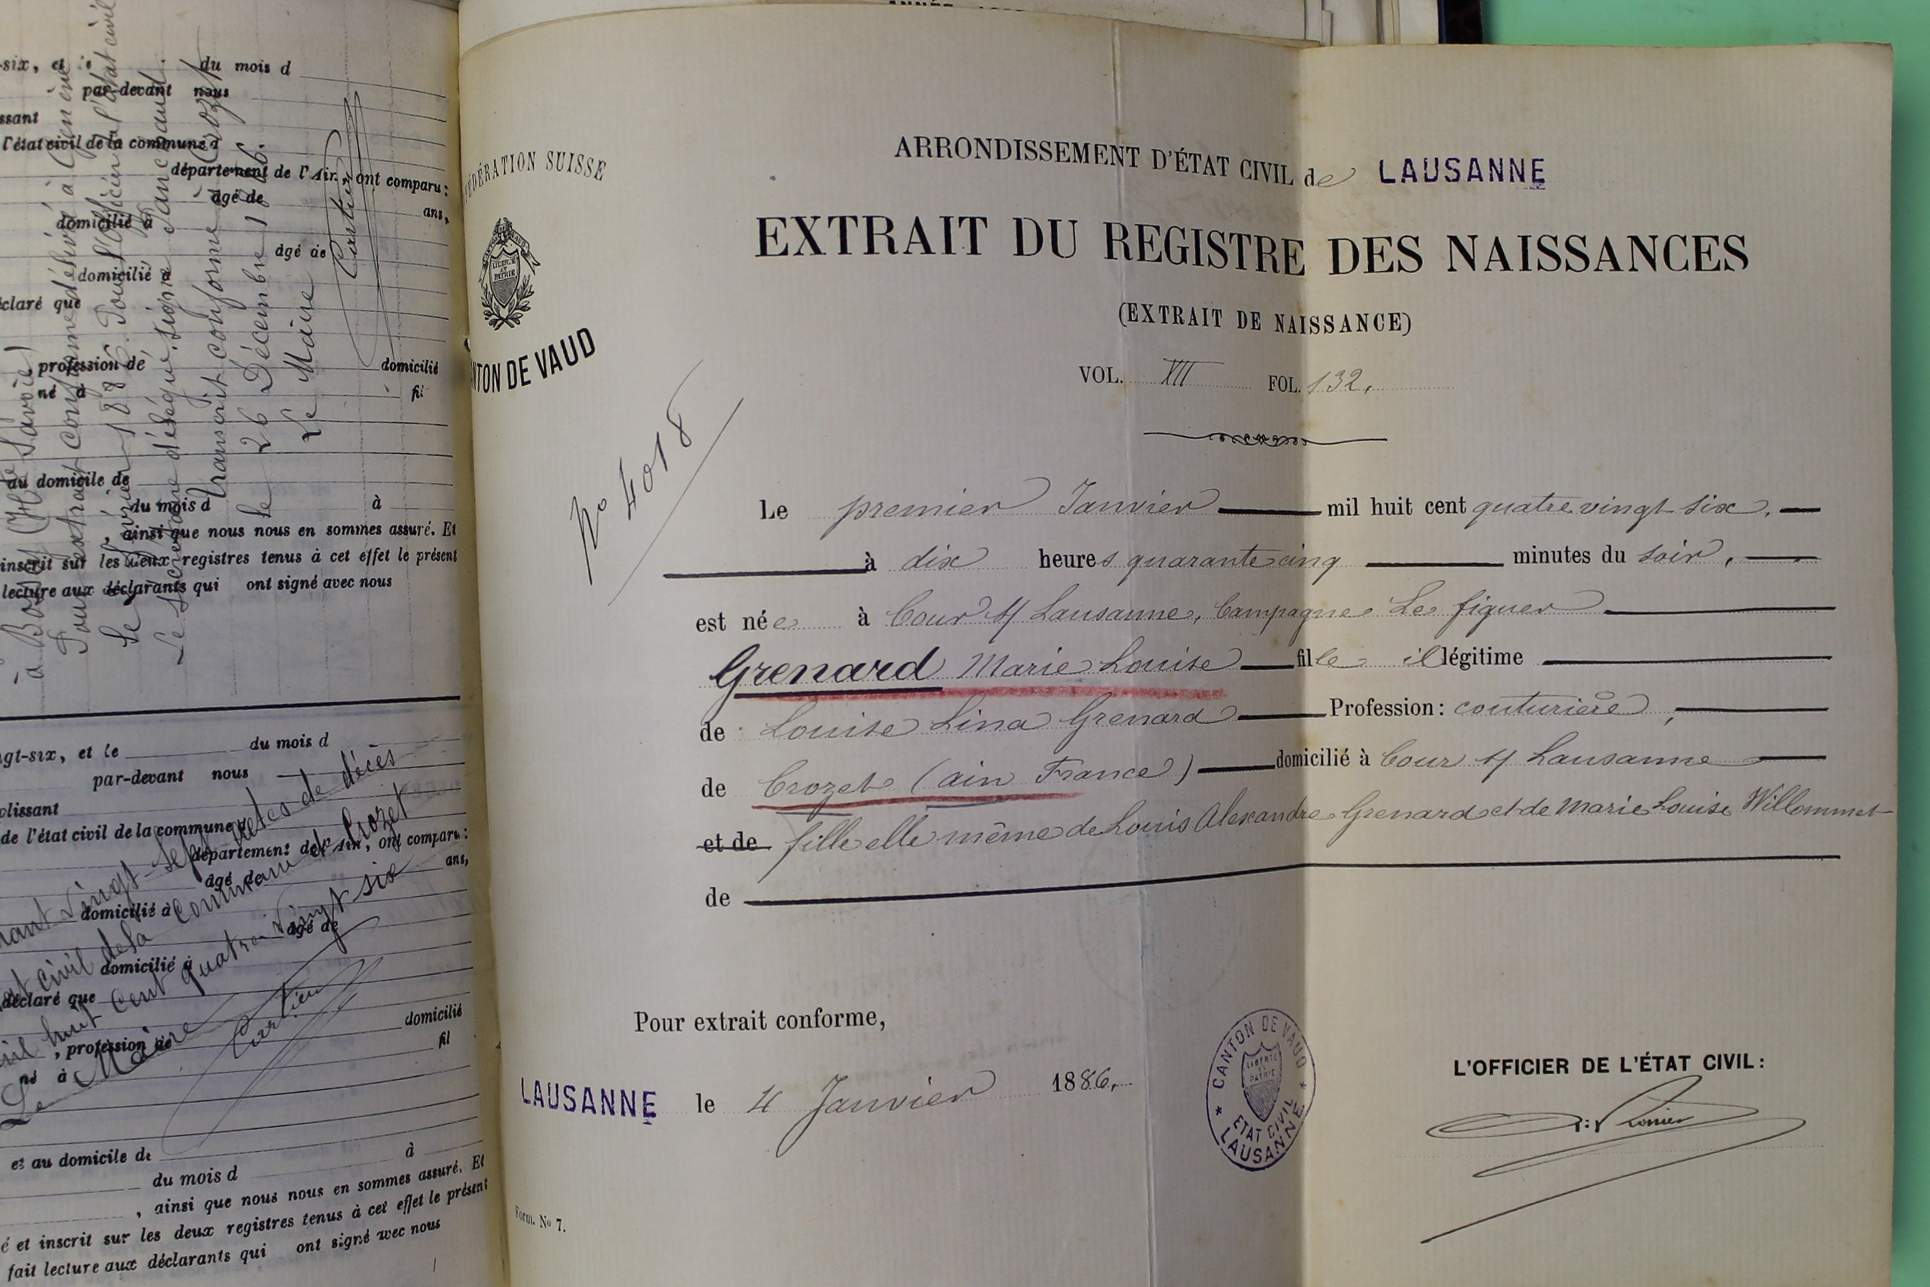 -six, et le du mois d
par-devant nous
l'état civil de la commune d
département de l'Ain, ont comparu :
âgé de ans,
domicilié à
âgé de
domicilié à
déclaré que
profession de domicilié
né à fil
au domicile de
du mois d à
, ainsi que nous nous en sommes assuré. Et
inscrit sur les deux registres tenus à cet effet le présent
lecture aux déclarants qui ont signé avec nous
à Bossy (Hte Savoie)
Pour extrait conforme délivré à
Le secrétaire délégué, signé
Transcrit conforme à Crozet
le 26 Décembre 1886.
Le Maire
ngt-six, et le du mois d
par-devant nous
plissant
de l'état civil de la commune d
département de l'Ain, ont comparu :
âgé de ans,
domicilié à
âgé de
domicilié à
déclaré que
, profession de domicilié
né à fil
et au domicile de
du mois d à
, ainsi que nous nous en sommes assuré. Et
é et inscrit sur les deux registres tenus à cet effet le présent
fait lecture aux déclarants qui ont signé avec nous
vingt-sept actes de décès
civil de la commune de Crozet
mil huit cent quatre vingt six
Le Maire
CONFÉDÉRATION SUISSE
LIBERTÉ ET PATRIE
CANTON DE VAUD
No 4018
ARRONDISSEMENT D'ÉTAT CIVIL de LAUSANNE
EXTRAIT DU REGISTRE DES NAISSANCES
(EXTRAIT DE NAISSANCE)
VOL. XII FOL. 132.
Le premier Janvier mil huit cent quatre vingt six.
à dix heures quarante cinq minutes du soir.
est née à Cour s/ Lausanne, Campagne Le figuer
Grenard Marie Louise fille illégitime
de Louise Lina Grenard Profession : couturière,
de Crozet (ain France) domicilié à Cour s/ Lausanne
et de fille elle même de Louis Alexandre Grenard et de Marie Louise Willommet
de
Pour extrait conforme,
LAUSANNE le 4 Janvier 1886.
CANTON DE VAUD
LIBERTÉ ET PATRIE
ETAT CIVIL
LAUSANNE
L'OFFICIER DE L'ÉTAT CIVIL :
Form. No 7.